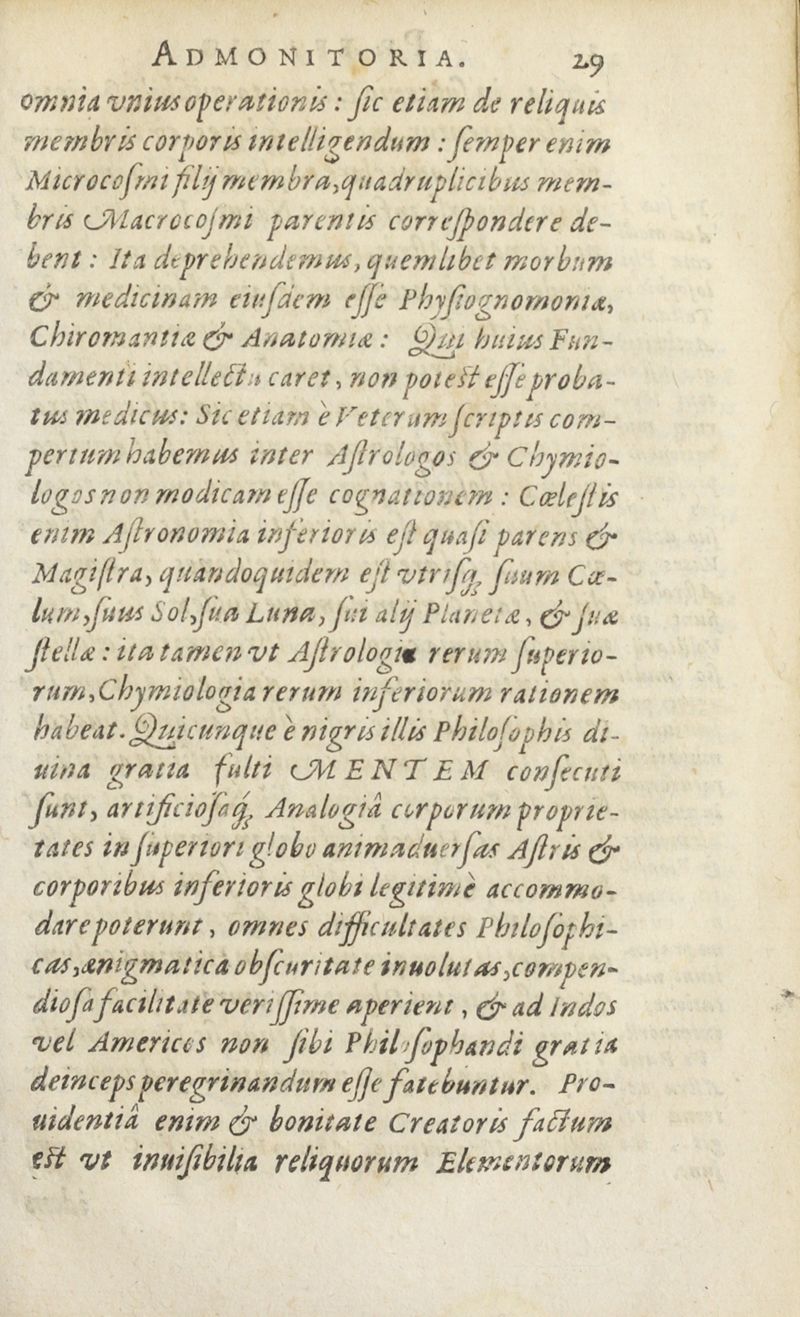 ADMONITORIA. 29
omnia vnius operationis : ſic etiam de reliquis
membris corporis intelligendum : ſemper enim
Microcoſmi filij membra, quadruplicibus mem-
bris Macrocoſmi parentis correſpondere de-
bent : Ita deprehendemus, quemlibet morbum
& medicinam eiuſdem eſſe Phyſiognomoniæ,
Chiromantiæ & Anatomiæ : Qui huius Fun-
damenti intellectu caret, non poteſt eſſe proba-
tus medicus: Sic etiam è Veterum ſcriptis com-
pertum habemus inter Aſtrologos & Chymio-
logos non modicam eſſe cognationem : Cœleſtis
enim Aſtronomia inferioris eſt quaſi parens &
Magiſtra, quandoquidem eſt vtriſq; ſuum Cœ-
lum, ſuus Sol, ſua Luna, ſui alij Planetæ, & ſuæ
ſtellæ : ita tamen vt Aſtrologia rerum ſuperio-
rum, Chymiologia rerum inferiorum rationem
habeat. Quicunque è nigris illis Philoſophis di-
uina gratia fulti MENTEM conſecuti
ſunt, artificioſaq; Analogiâ corporum proprie-
tates in ſuperiori globo animaduerſas Aſtris &
corporibus inferioris globi legitimè accommo-
dare poterunt, omnes difficultates Philoſophi-
cas, ænigmatica obſcuritate inuolutas, compen-
dioſa facilitate veriſſime aperient, & ad Indos
vel Americos non ſibi Philoſophandi gratia
deinceps peregrinandum eſſe fatebuntur. Pro-
uidentiâ enim & bonitate Creatoris factum
eſt vt inuiſibilia reliquorum Elementorum